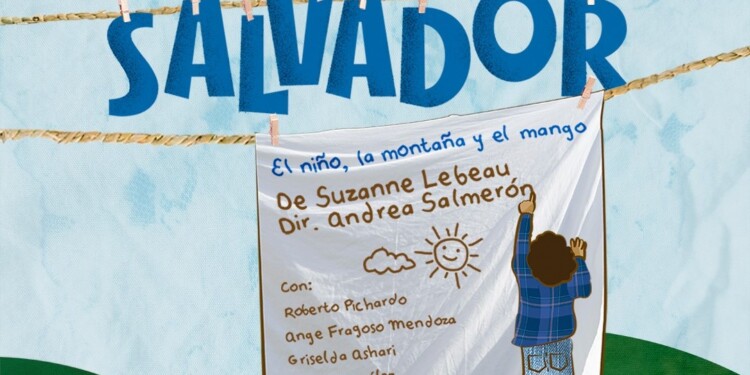 SALVADOR
El niño, la montaña y el mango
De Suzanne Lebeau
Dir. Andrea Salmerón
Con:
Roberto Pichardo
Ange Fragoso Mendoza
Griselda Ashari